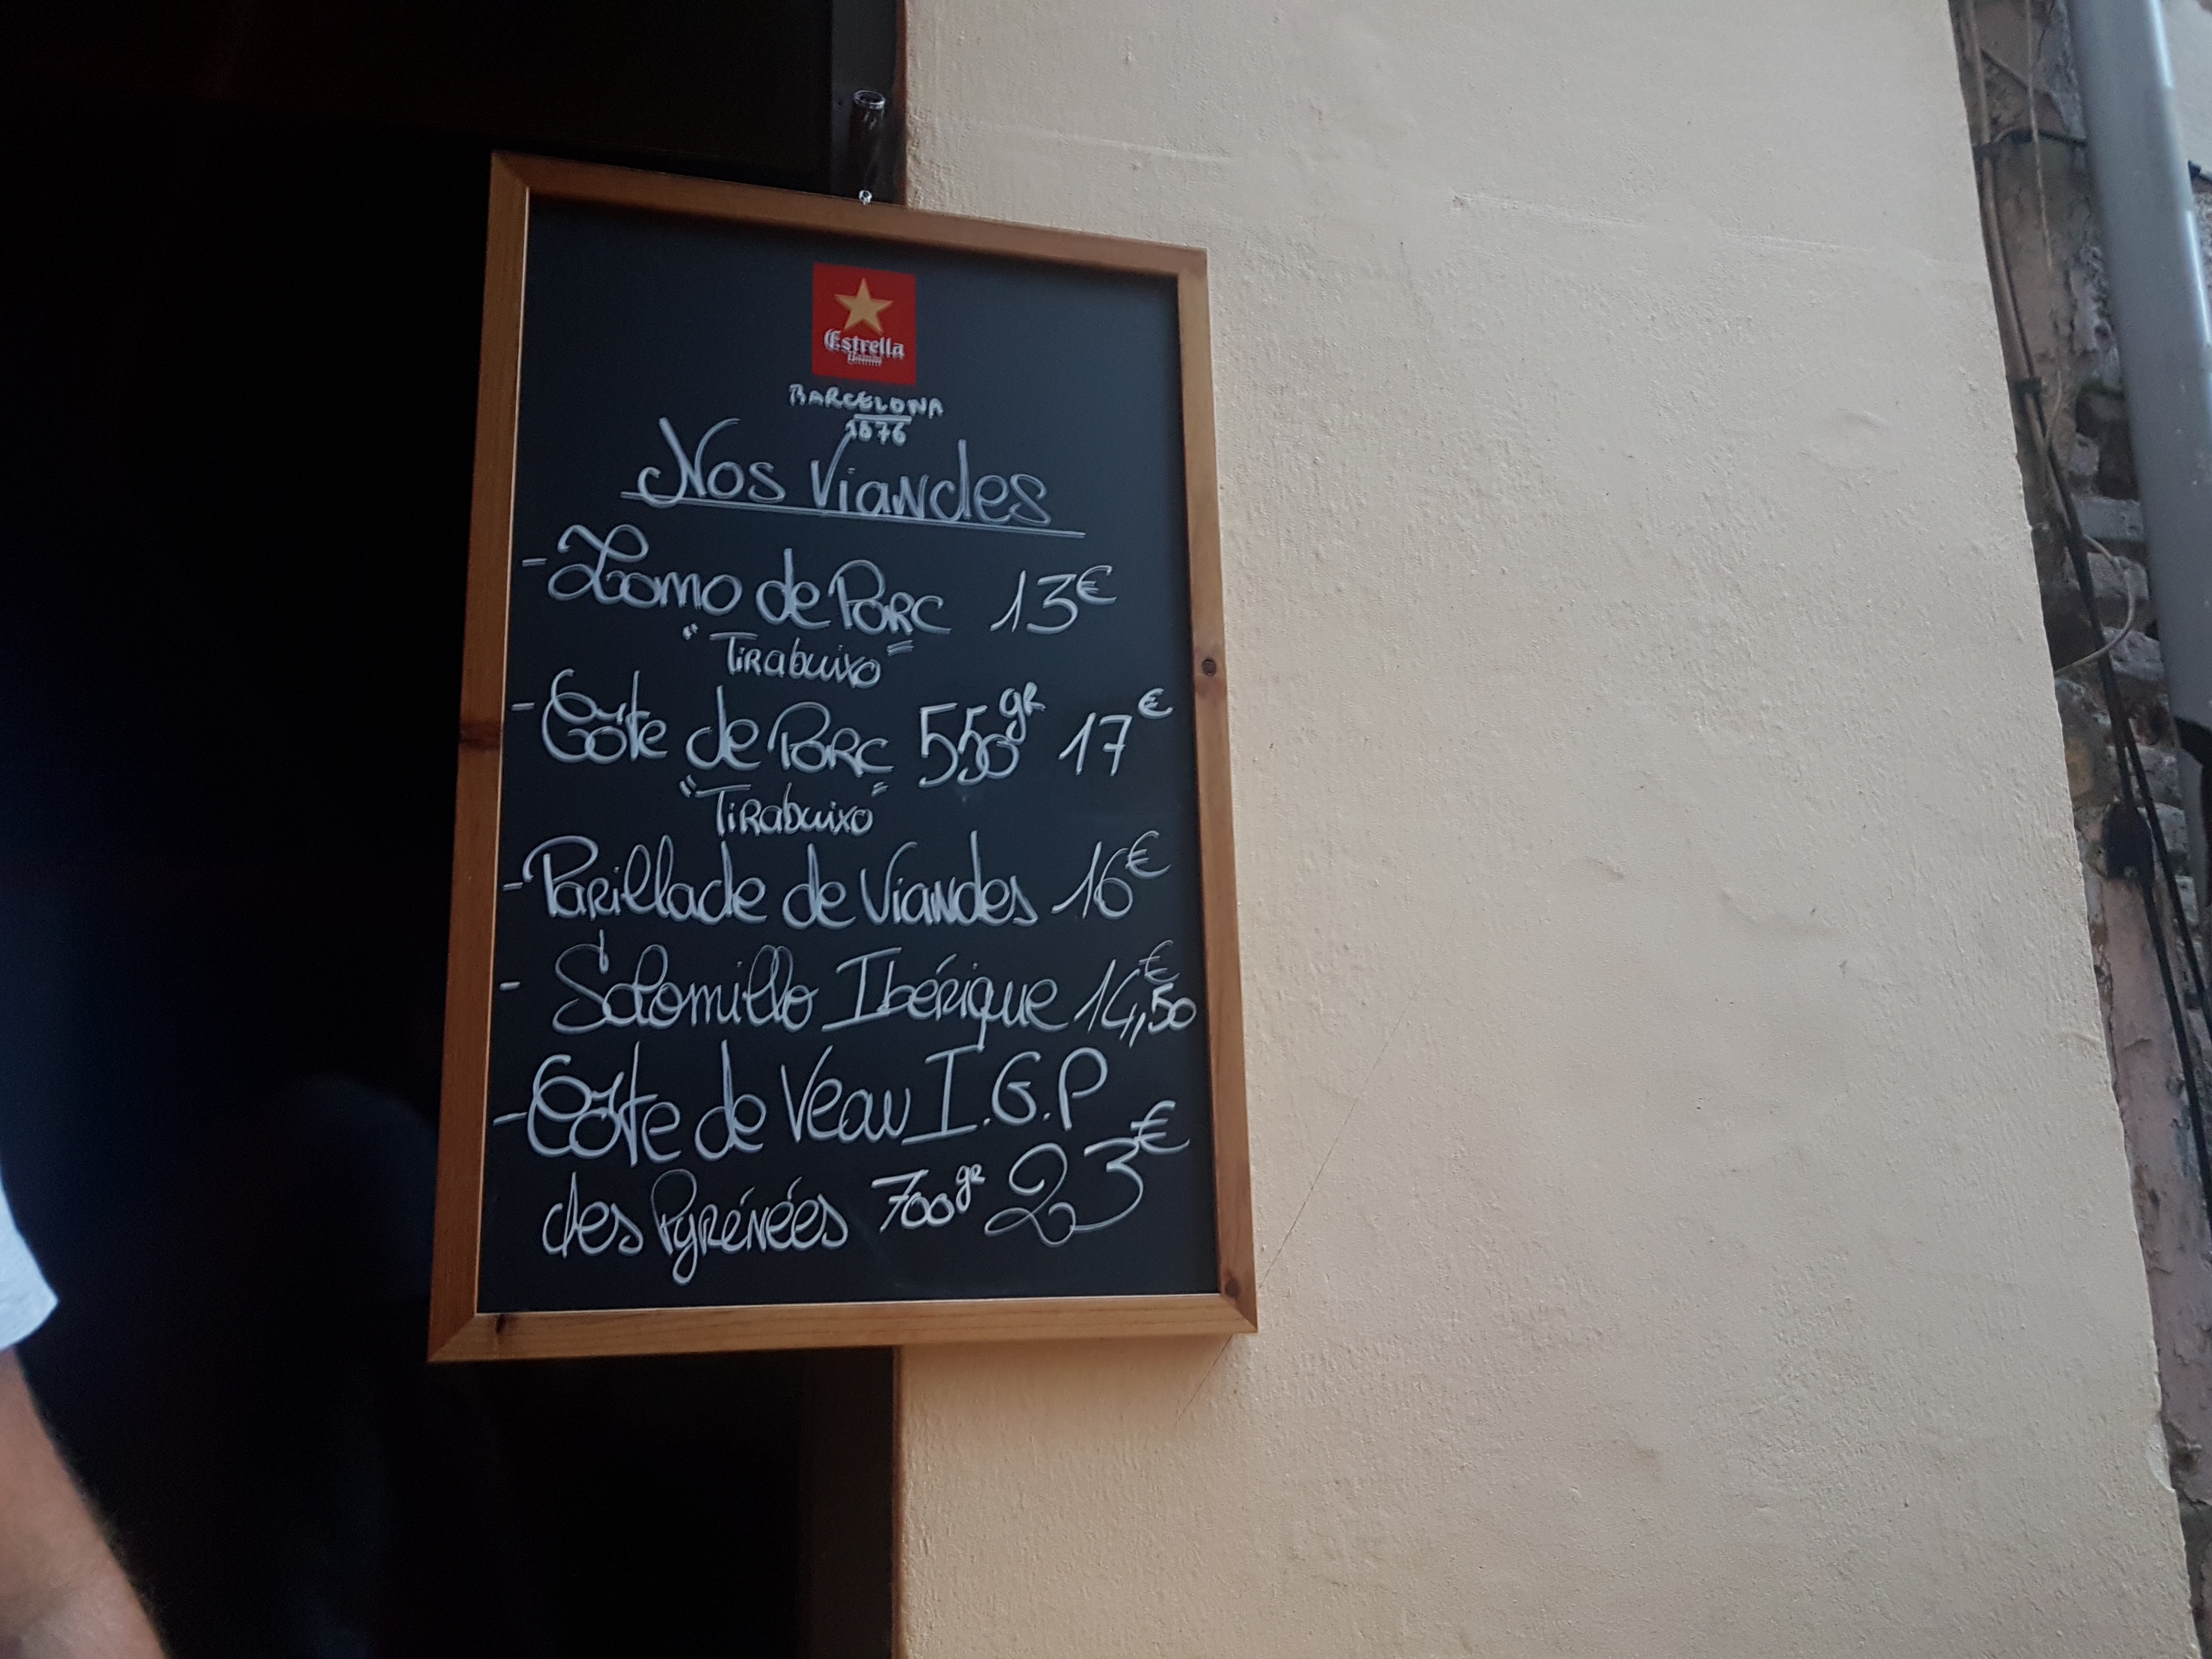 Estrella
Damm
BARCELONA
1876
Nos Viandes
- Lomo de Porc 13€
"Tirabuixo"
- Côte de Porc 550gr 17€
"Tirabuixo"
- Parillade de Viandes 16€
- Solomillo Ibérique 14,50€
- Côte de Veau I.G.P
des Pyrénées 700gr 23€